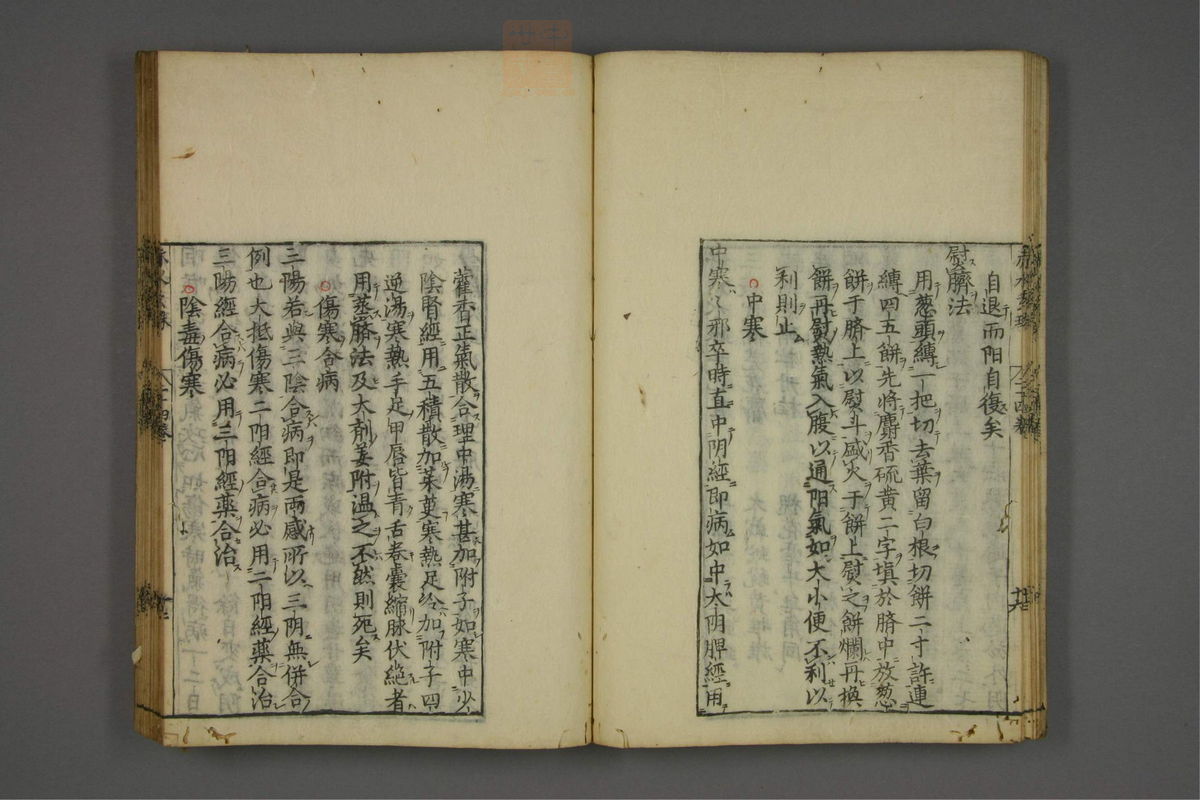 自退而阳自復矣
熨臍法
用葱頭縛一把切去葉留白根切餅二寸許連
縛四五餅先將麝香硫黄二字填於臍中放葱
餅于臍上以熨斗盛火于餅上熨之餅爛再換
餅再熨熱氣入腹以通阳氣如大小便不利以
利則止
中寒
中寒寒邪卒時直中阴經即病如中太阴脾經用
藿香正氣散合理中湯寒甚加附子如寒中少
陰腎經用五積散加茱萸寒熱足冷加附子四
逆湯寒熱手足甲唇皆青舌卷囊縮脉伏絕者
用蒸臍法及大剤姜附温之不然則死矣
傷寒合病
三陽若與三陰合病即是両感所以三阴無併合
例也大抵傷寒二阳經合病必用二阳經藥合治
三陽經合病必用三阳經藥合治
陰毒傷寒